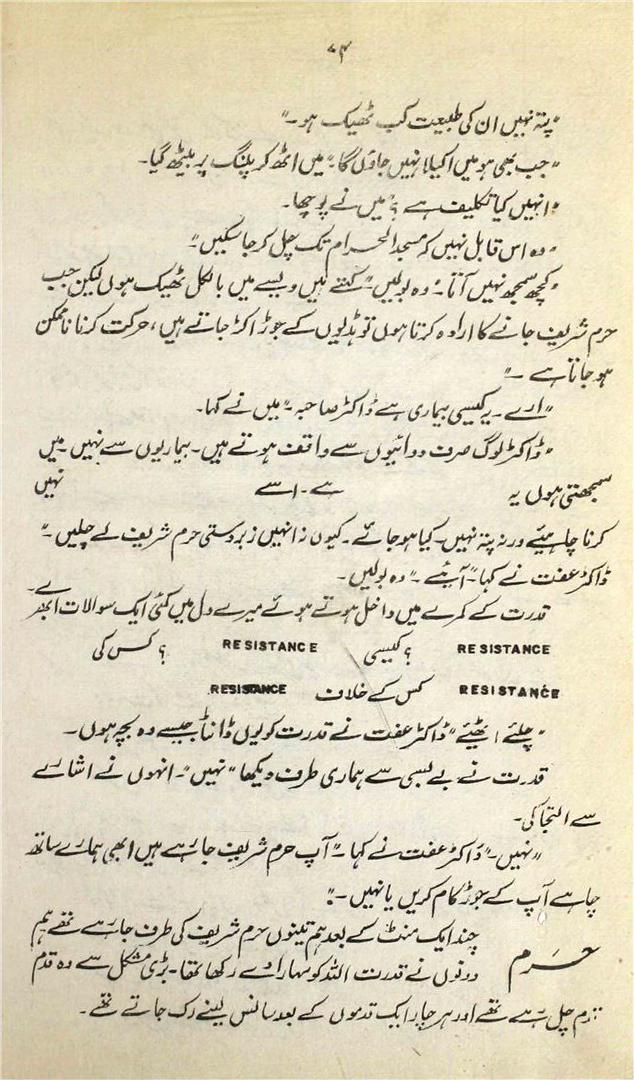 ۷۴
"پتہ نہیں ان کی طبیعت کب ٹھیک ہو۔"
"جب بھی ہو میں اکیلا نہیں جاؤں گا۔" میں اٹھ کر پلنگ پر بیٹھ گیا۔
"انہیں کیا تکلیف ہے؟" میں نے پوچھا۔
"وہ اس قابل نہیں کہ مسجد الحرام تک چل کر جا سکیں"۔
"کچھ سمجھ نہیں آتا۔" وہ بولیں۔ "کہتے ہیں ویسے میں بالکل ٹھیک ہوں لیکن جب
حرم شریف جانے کا ارادہ کرتا ہوں تو ہڈیوں کے جوڑ اکڑ جاتے ہیں، حرکت کرنا ناممکن
ہو جاتا ہے۔"
"ارے۔ یہ کیسی بیماری ہے ڈاکٹر صاحبہ۔" میں نے کہا۔
"ڈاکٹر لوگ صرف دوائیوں سے واقف ہوتے ہیں۔ بیماریوں سے نہیں۔ میں
سمجھتی ہوں یہ ہے۔ اسے نہیں
کرنا چاہیئے ورنہ پتہ نہیں۔ کیا ہو جائے۔ کیوں نہ انہیں زبردستی حرم شریف لے چلیں۔"
ڈاکٹر عفت نے کہا۔ "آیئے۔" وہ بولیں۔
قدرت کے کمرے میں داخل ہوتے ہوئے میرے دل میں کئی ایک سوالات ابھرے۔
RESISTANCE ؟ کیسی RESISTANCE ؟ کس کی
RESISTANCE کس کے خلاف RESISTANCE
"چلئے اٹھیئے" ڈاکٹر عفت نے قدرت کو یوں ڈانٹا جیسے وہ بچہ ہوں۔
قدرت نے بے بسی سے ہماری طرف دیکھا "نہیں"۔ انہوں نے اشارے
سے التجا کی۔
"نہیں۔" ڈاکٹر عفت نے کہا۔ "آپ حرم شریف جا رہے ہیں ابھی ہمارے ساتھ
چاہے آپ کے جوڑ کام کریں یا نہیں۔"
حرم چند ایک منٹ کے بعد ہم تینوں حرم شریف کی طرف جا رہے تھے ہم
دونوں نے قدرت اللہ کو سہارا دے رکھا تھا۔ بڑی مشکل سے وہ قدم
قدم چل رہے تھے اور ہر چار ایک قدموں کے بعد سانس لینے رک جاتے تھے۔